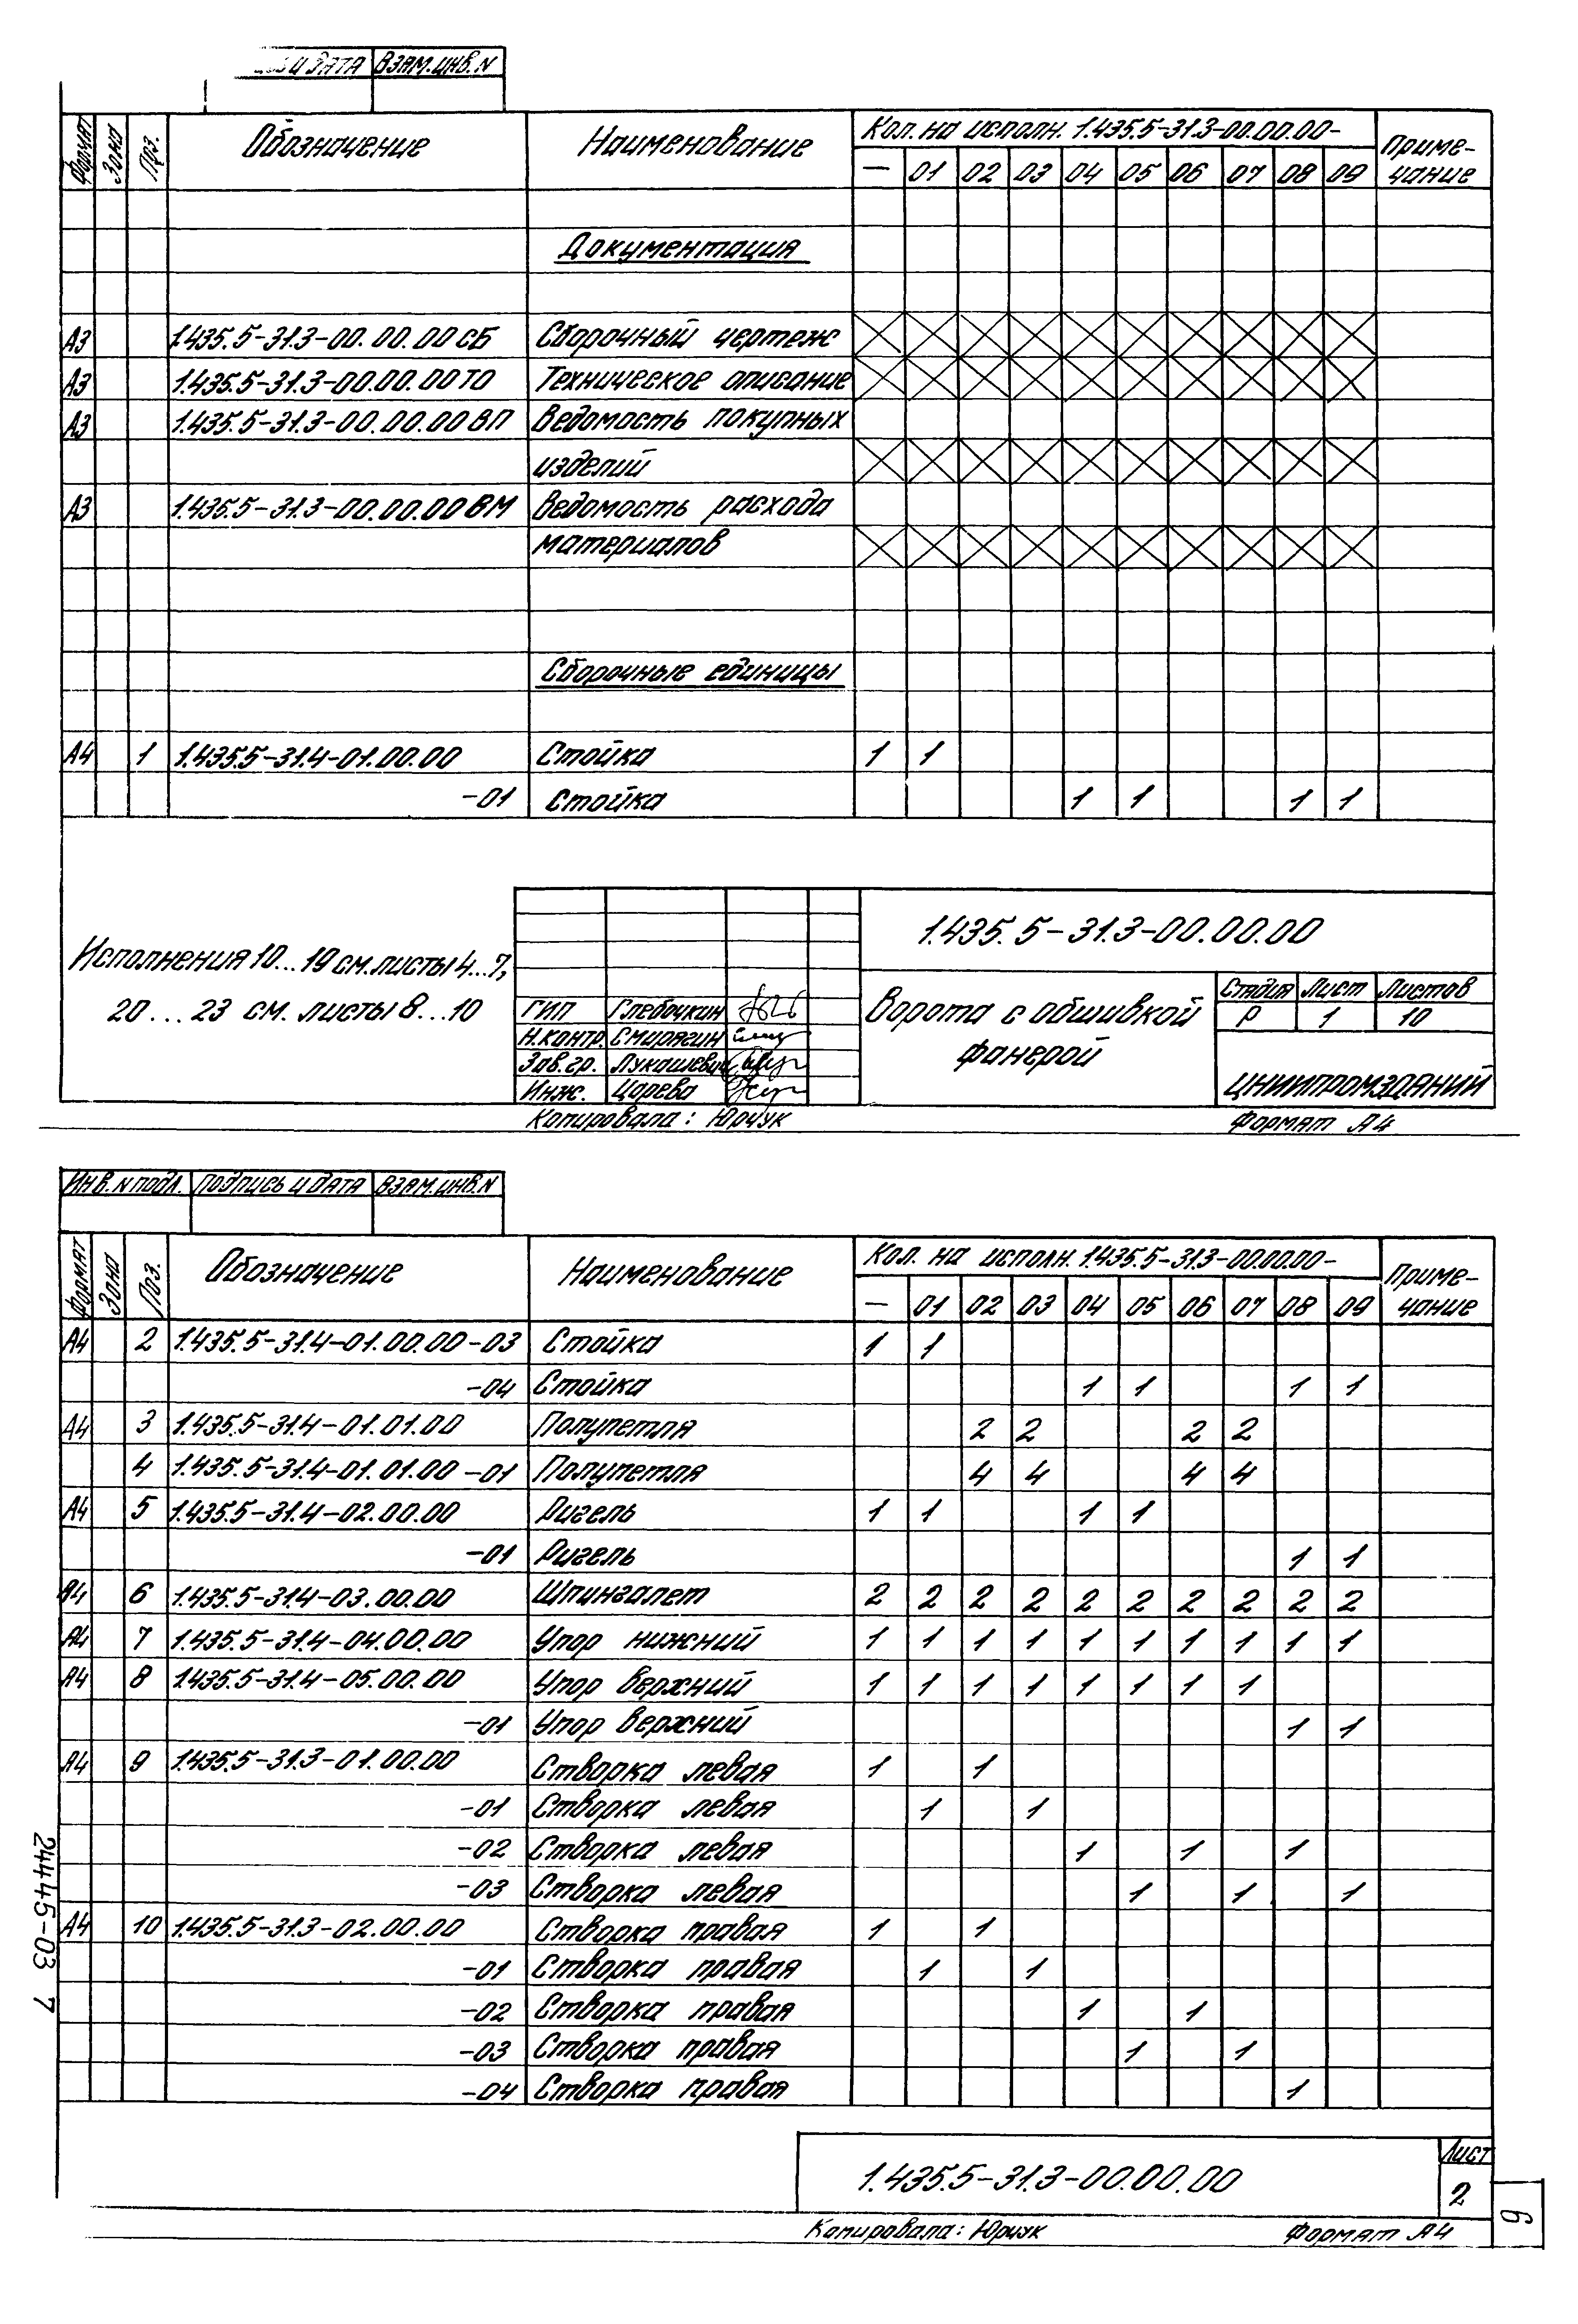 и дата Взам.инв.N
Формат Зона Поз. Обозначение Наименование Кол. на исполн. 1.435.5-31.3-00.00.00- Приме-
чание
— 01 02 03 04 05 06 07 08 09
Документация
А3 1.435.5-31.3-00.00.00СБ Сборочный чертеж
А3 1.435.5-31.3-00.00.00ТО Техническое описание
А3 1.435.5-31.3-00.00.00ВП Ведомость покупных
изделий
А3 1.435.5-31.3-00.00.00ВМ Ведомость расхода
материалов
Сборочные единицы
А4 1 1.435.5-31.4-01.00.00 Стойка 1 1
-01 Стойка 1 1 1 1
Исполнения 10...19 см. листы 4...7,
20...23 см. листы 8...10
ГИП Глебочкин
Н.контр. Смирягин
Зав.гр. Лукашевич
Инж. Царева
1.435.5-31.3-00.00.00
Ворота с обшивкой
фанерой
Стадия Лист Листов
Р 1 10
ЦНИИПРОМЗДАНИЙ
Копировала: Юрчук Формат А4
Инв.N подл. Подпись и дата Взам.инв.N
Формат Зона Поз. Обозначение Наименование Кол. на исполн. 1.435.5-31.3-00.00.00- Приме-
чание
— 01 02 03 04 05 06 07 08 09
А4 2 1.435.5-31.4-01.00.00-03 Стойка 1 1
-04 Стойка 1 1 1 1
А4 3 1.435.5-31.4-01.01.00 Полупетля 2 2 2 2
4 1.435.5-31.4-01.01.00-01 Полупетля 4 4 4 4
А4 5 1.435.5-31.4-02.00.00 Ригель 1 1 1 1
-01 Ригель 1 1
А4 6 1.435.5-31.4-03.00.00 Шпингалет 2 2 2 2 2 2 2 2 2 2
А4 7 1.435.5-31.4-04.00.00 Упор нижний 1 1 1 1 1 1 1 1 1 1
А4 8 1.435.5-31.4-05.00.00 Упор верхний 1 1 1 1 1 1 1 1
-01 Упор верхний 1 1
А4 9 1.435.5-31.3-01.00.00 Створка левая 1 1
-01 Створка левая 1 1
-02 Створка левая 1 1 1
-03 Створка левая 1 1 1
А4 10 1.435.5-31.3-02.00.00 Створка правая 1 1
-01 Створка правая 1 1
-02 Створка правая 1 1
-03 Створка правая 1 1
-04 Створка правая 1
24445-03 7
1.435.5-31.3-00.00.00
Лист
2
Копировала: Юрчук Формат А4
6